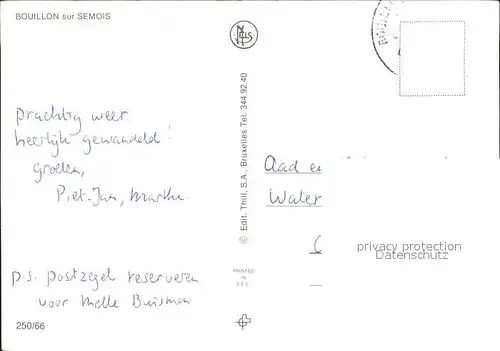 BOUILLON sur SEMOIS
NELS
BOUILL
prachtig weer.
heerlijk gewandeld!
groeten,
Piet-Jan, Marthe.
p.s. postzegel reserveren
voor Melle Buisman
250/66
© Edit. Thill, S.A., Bruxelles Tel. 344.92.40
PRINTED
IN
E.E.C.
Aad e
Water
privacy protection
Datenschutz